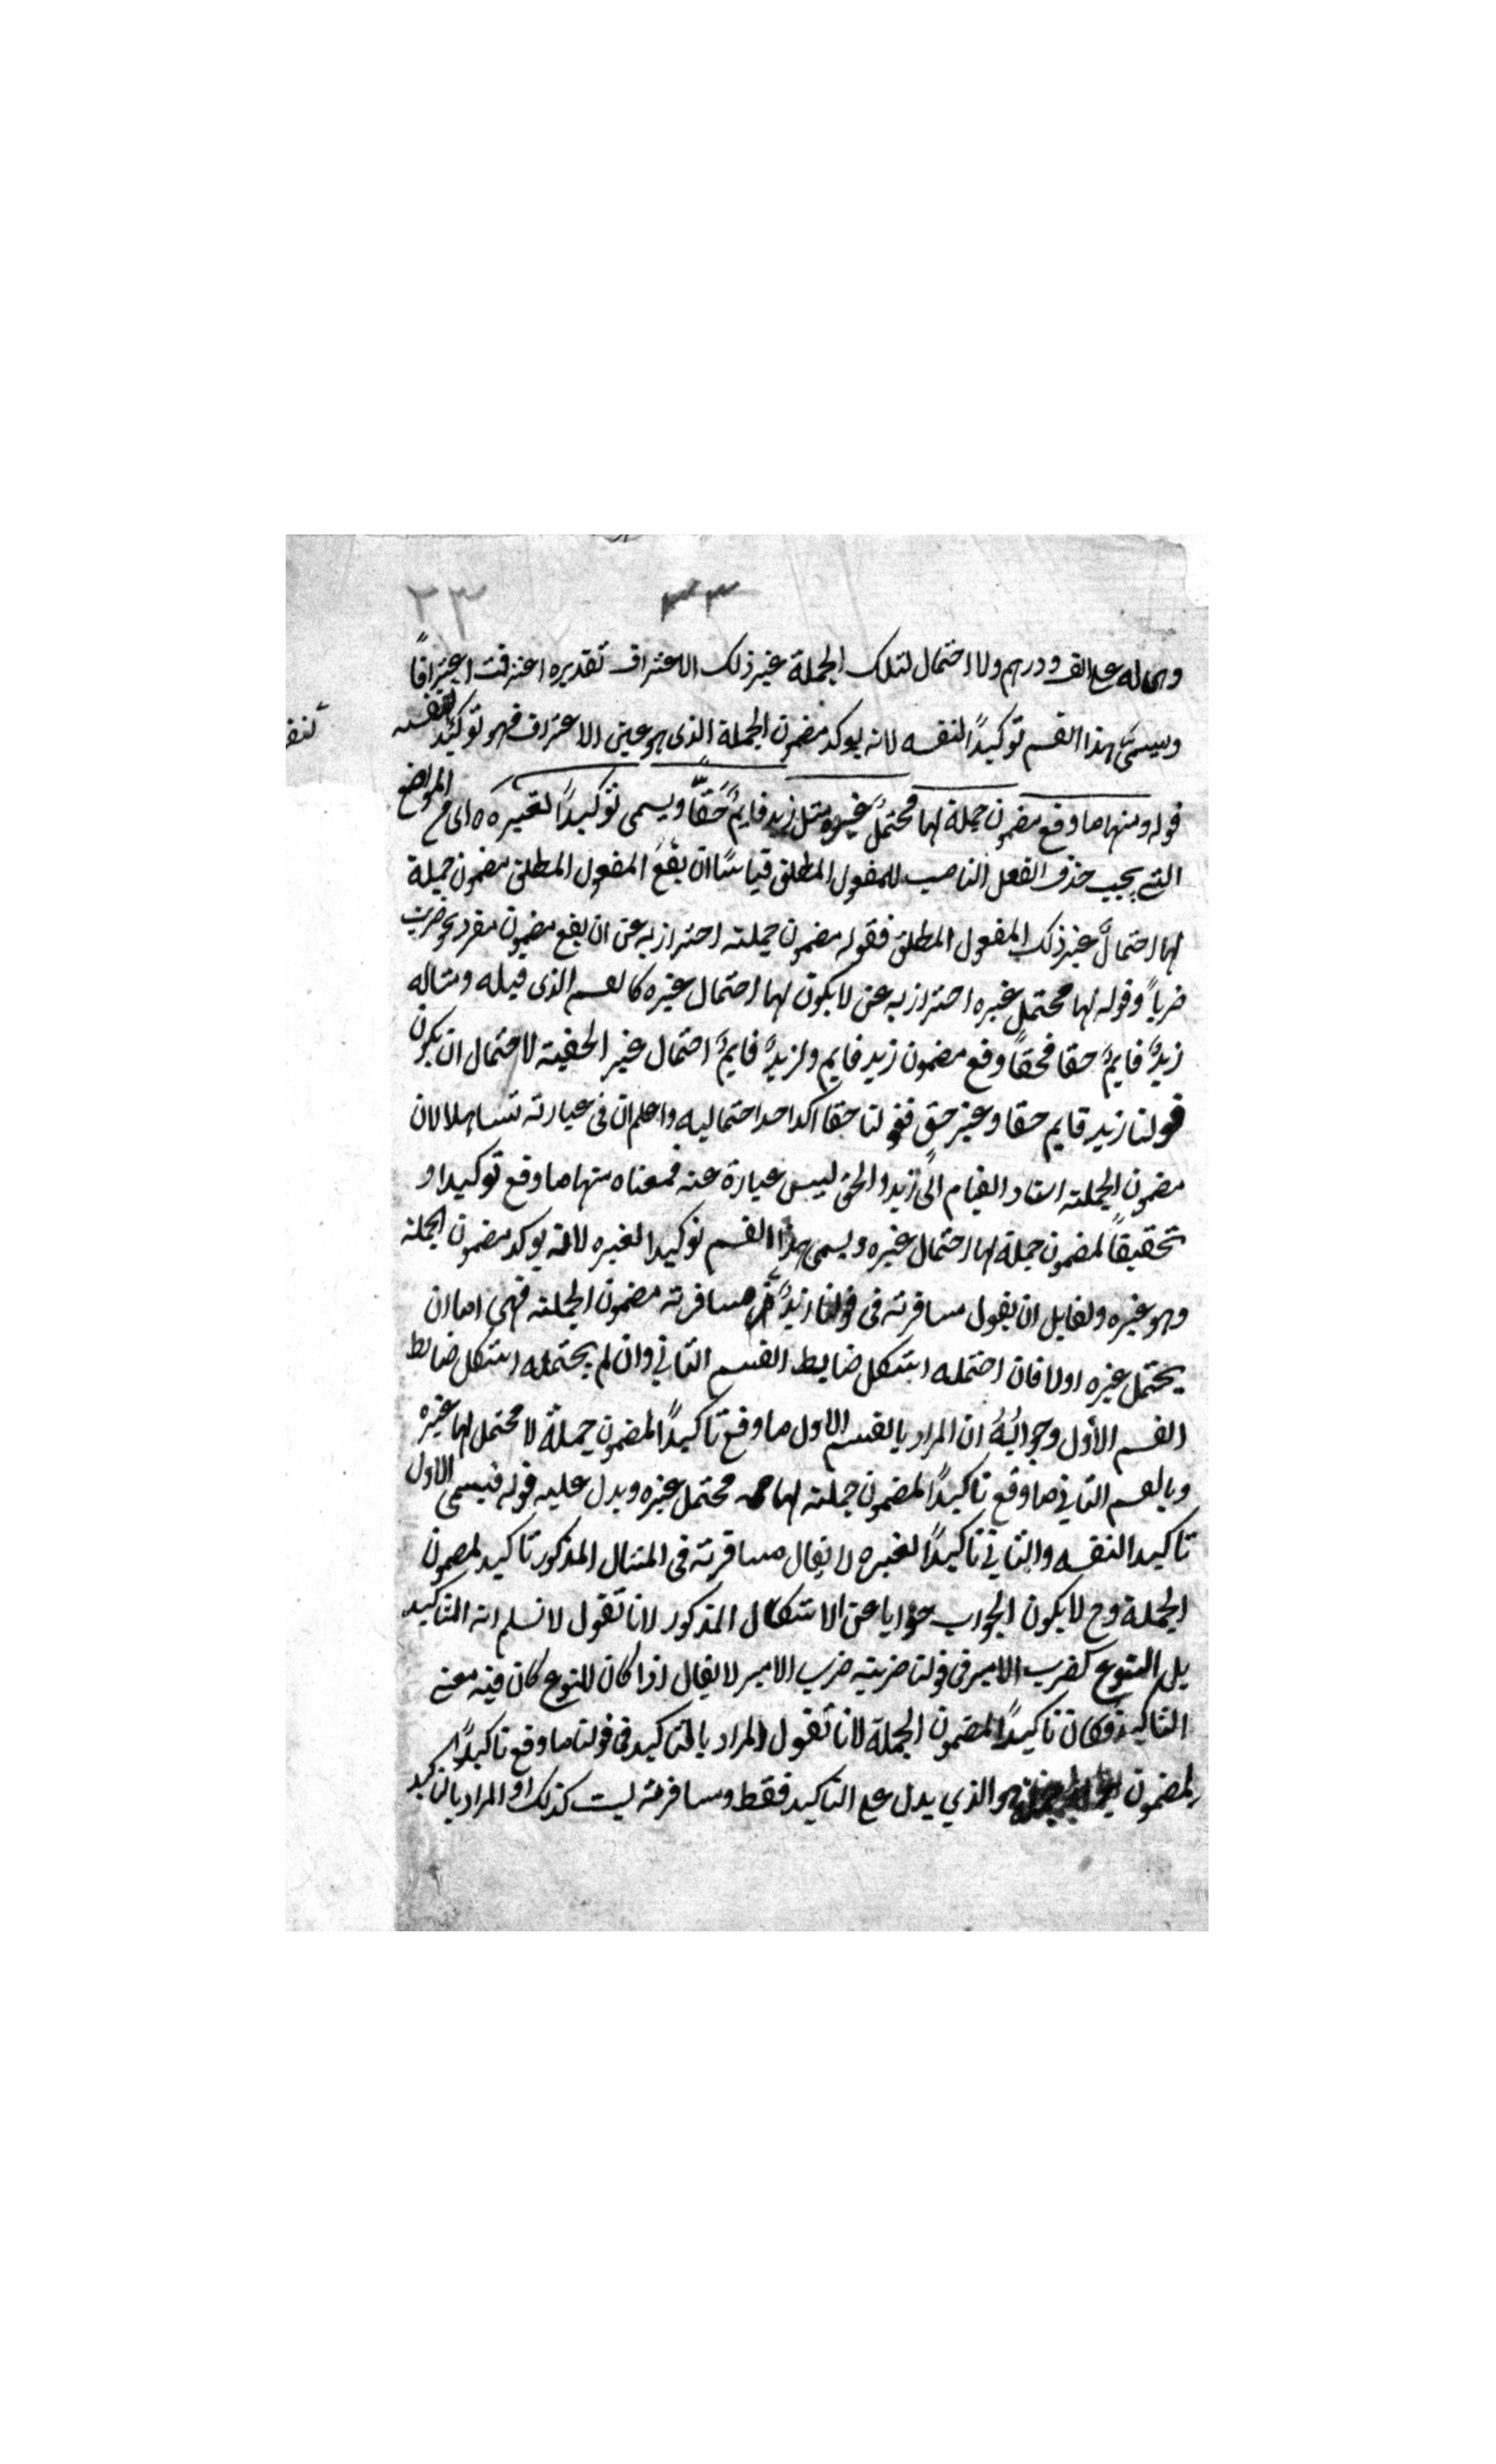 ٣٣ ٢٣
وهى له على الف درهم ولا احتمال لتلك الجملة غير ذلك الاعتراف تقديره اعترفت اعترافاً
ويسمى هذا القسم توكيداً لنفسه لانه يوكد مضمون الجملة الذى هو عين الاعتراف فهو توكيد لنفسه
قوله ومنها ما وقع مضمون جملة لها محتملٌ غيره مثل زيد قايمٌ حقّاً ويسمى توكيداً لغيره ه اى من المواضع
التى يجب حذف الفعل الناصب للمفعول المطلق قياساً ان يقع المفعول المطلق مضمون جملة
لها احتمالٌ غير ذلك المفعول المطلق فقوله مضمون جملته احترازبه عن ان يقع مضمون مفرد نحو ضربت
ضرباً وقوله لها محتمل غيره احترازبه عن لا يكون لها احتمال غيره كالقسم الذى قبله ومثاله
زيدٌ قايمٌ حقا فحقاً وقع مضمون زيد قايم ولزيدٌ قايمٌ احتمال غير الحقية لاحتمال ان يكون
قولنا زيد قايم حقا وغير حق فقولنا حقا اكد احد احتماليه واعلم ان فى عبارته تساهلا لان
مضمون الجملته اسناد القيام الى زيد والحق ليس عبارة عنه فمعناه منها ما وقع توكيدا و
تحقيقاً لمضمون جملة لها احتمال غيره ويسمى هذا القسم توكيدا لغيره لانه يوكد مضمون الجملة
وهو غيره ولقايل ان يقول مسافرته فى قولنا زيدٌ مسافرته مضمون الجملته فهى اما ان
يحتمل غيره اولا فان احتمله اشكل ضابط القسم الثانى وان لم يحتمله اشكل ضابط
القسم الاول وجوابُهُ ان المراد بالقسم الاول ما وقع تاكيداً لمضمون جملة لا محتمل لها غيره
وبالقسم الثانى ما وقع تاكيداً لمضمون جملته لها محتمل غيره ويدل عليه قوله فيسمى الاول
تاكيدا لنفسه والثانى تاكيداً لغيره لا يقال مسافرته فى المثال المذكور تاكيد لمضمون
الجملة وح لا يكون الجواب جوابا عن الاشكال المذكور لانا نقول لا نسلم انه التاكيد
بل للنوع كضرب الامير فى قولنا ضربته ضرب الامير لا يقال اذا كان للنوع كان فيه معنى
التاكيد فكان تاكيداً لمضمون الجملة لانا نقول المراد بالتاكيد فى قولنا ما وقع تاكيداً
لمضمون هو الذي يدل على التاكيد فقط ومسافرته ليست كذلك او المراد بالتاكيد